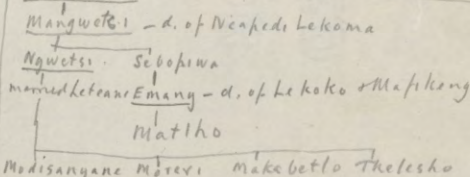 Mangwetsi - d. of Neapedi Lekoma
Ngwetsi. Sebopiwa
married Leteane Emang - d. of Lekoko & Mafikeng
Matlho
Modisanyane Moreri Makabetlo Thelesho